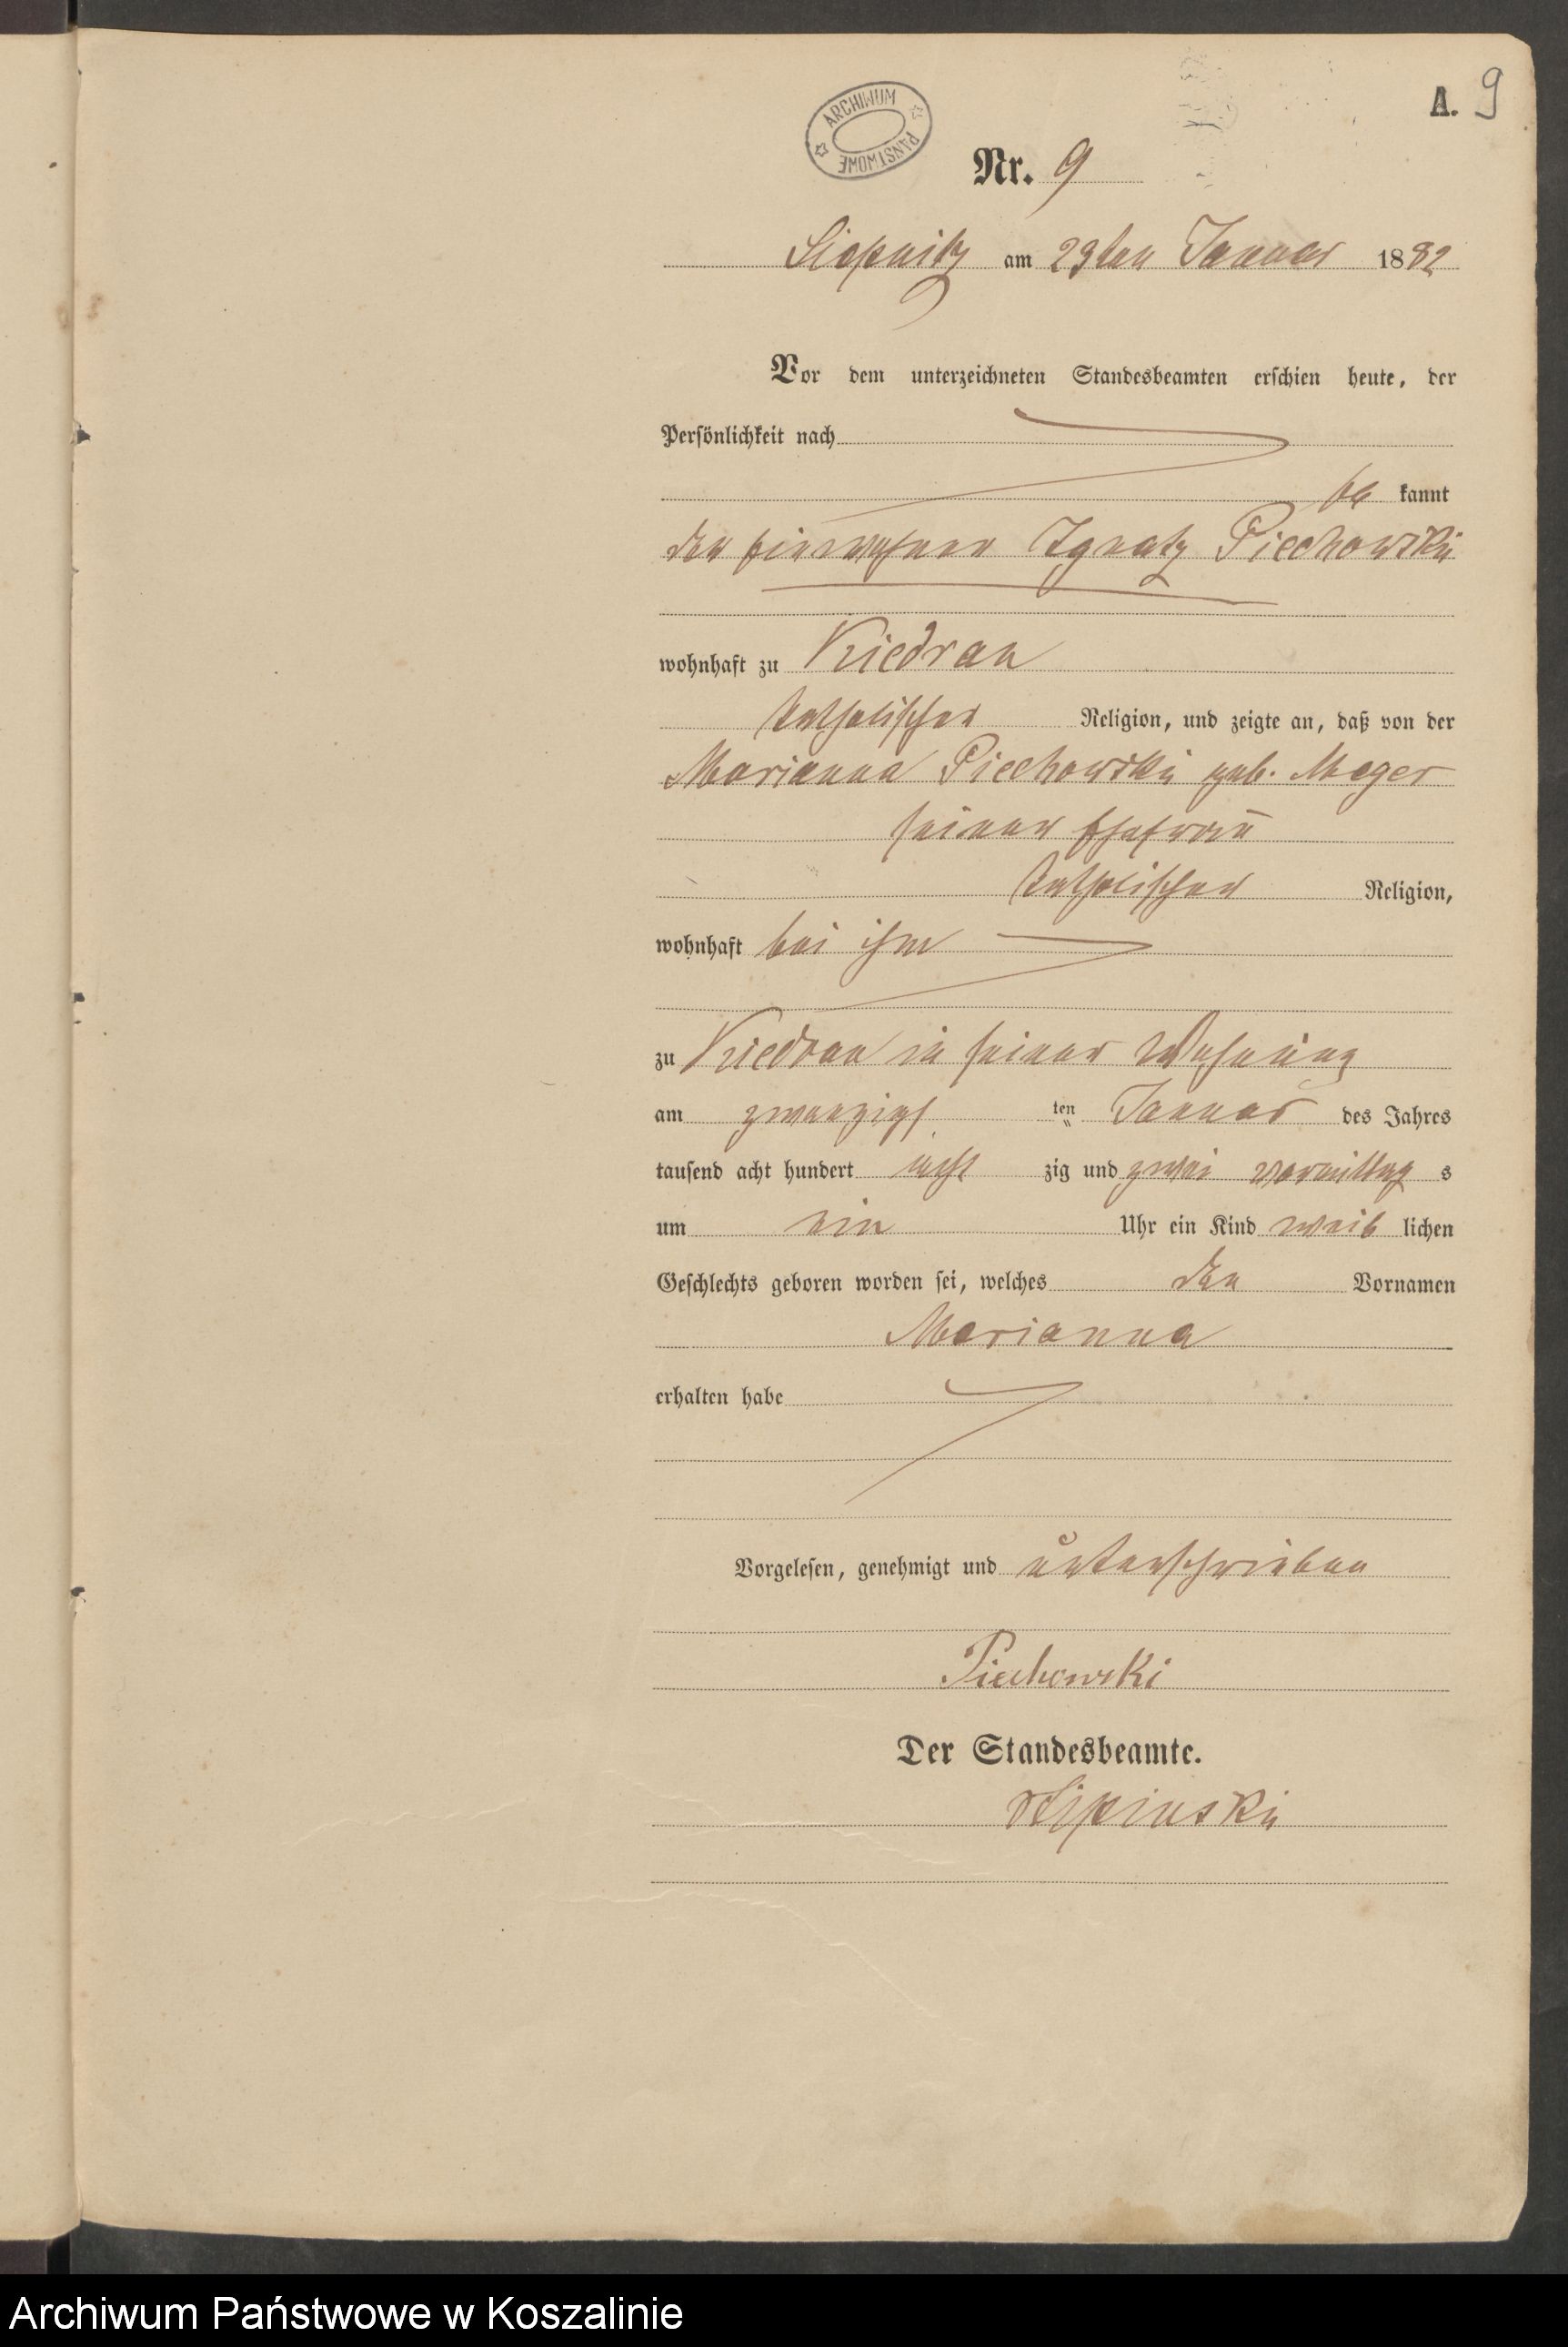 ARCHIWUM PAŃSTWOWE
A. 9
Nr. 9
am 23ten Januar 1882
Vor dem unterzeichneten Standesbeamten erschien heute, der
Persönlichkeit nach
be kannt
der Einwohner Ignatz Piechowski
wohnhaft zu Kiedrau
katholischer Religion, und zeigte an, daß von der
Marianna Piechowski geb. Mager
seiner Ehefrau
katholischer Religion,
wohnhaft bei ihm
zu Kiedrau in seiner Wohnung
am zwanzigs ten Januar des Jahres
tausend acht hundert acht zig und zwei vormittag s
um ein Uhr ein Kind weib lichen
Geschlechts geboren worden sei, welches den Vornamen
Marianna
erhalten habe
Vorgelesen, genehmigt und unterschrieben
Piechowski
Der Standesbeamte.
Lipinski
Archiwum Państwowe w Koszalinie